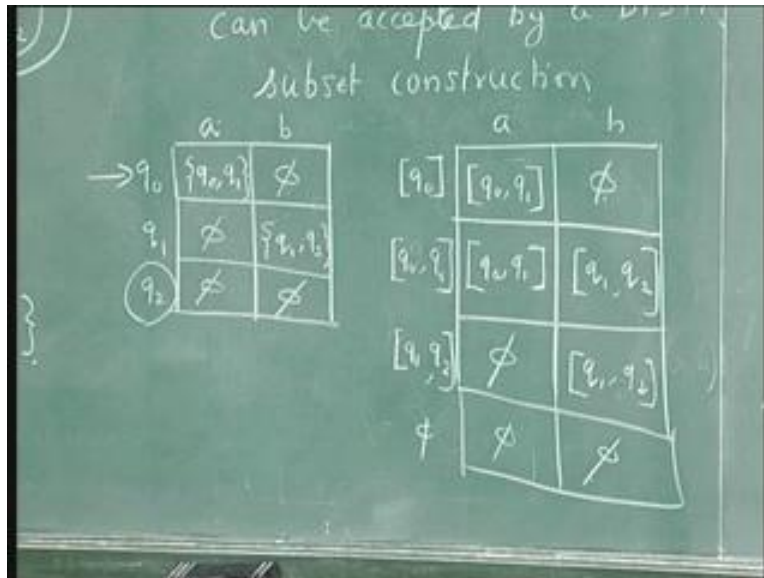 can be accepted by a DFSA
subset construction
a b
→q₀ {q₀,q₁} ϕ
q₁ ϕ {q₁,q₂}
q₂ ϕ ϕ
}
a b
[q₀] [q₀,q₁] ϕ
[q₀,q₁] [q₀,q₁] [q₁,q₂]
[q₁,q₂] ϕ [q₁,q₂]
ϕ ϕ ϕ